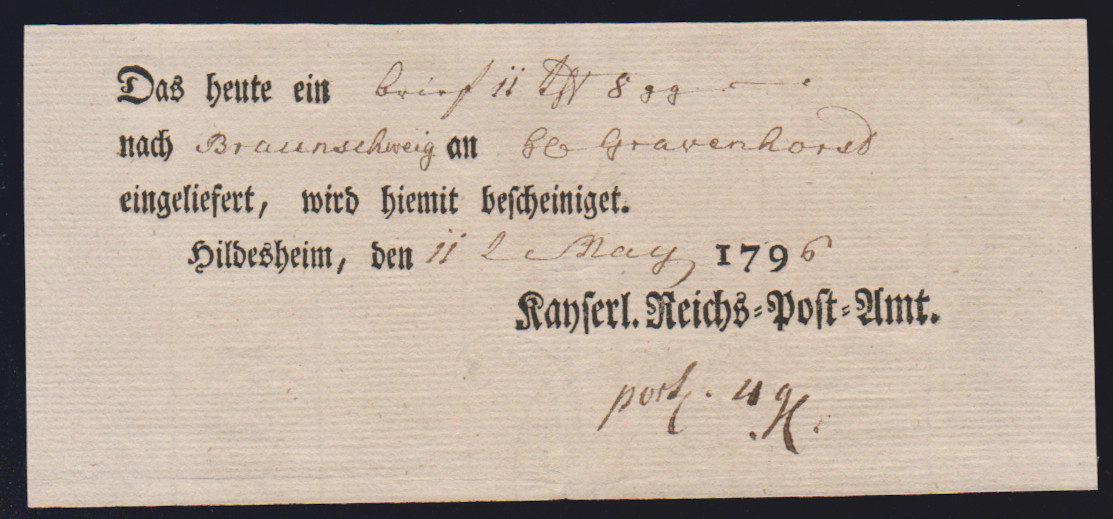 Das heute ein brief 11 8 gg
nach Braunschweig an Gravenhorst
eingeliefert, wird hiemit bescheiniget.
Hildesheim, den 11 May 1796
Kayserl. Reichs-Post-Amt.
port. 4 g